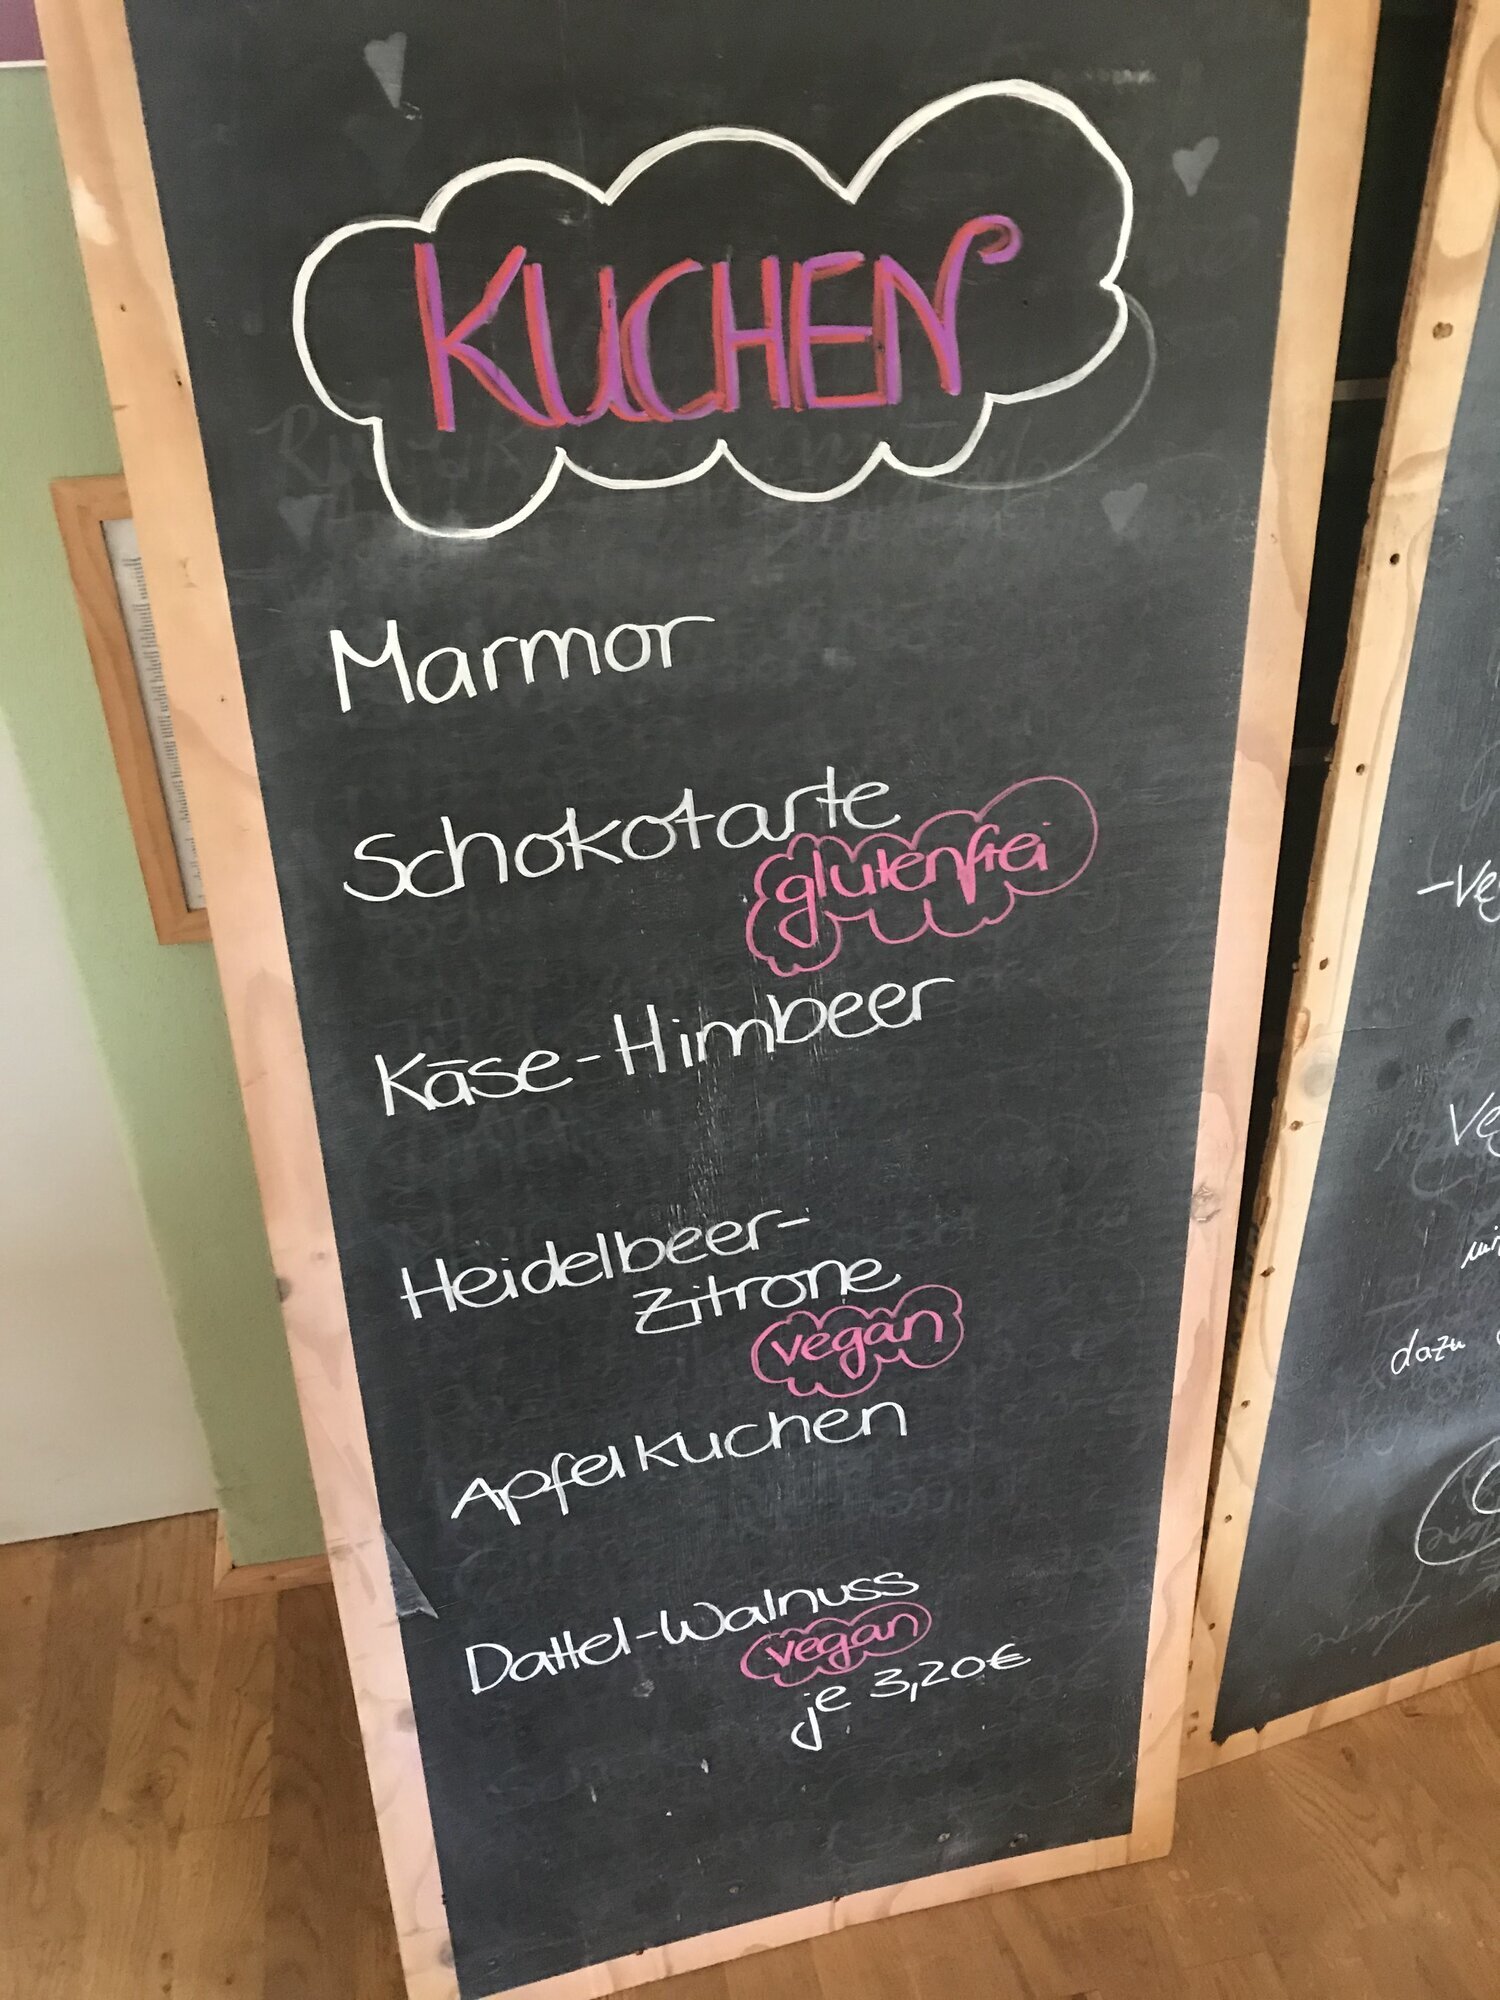 KUCHEN
Marmor
Schokotarte
glutenfrei
Käse-Himbeer
Heidelbeer-
Zitrone
vegan
Apfelkuchen
Dattel-Walnuss
vegan
je 3,20€
dazu